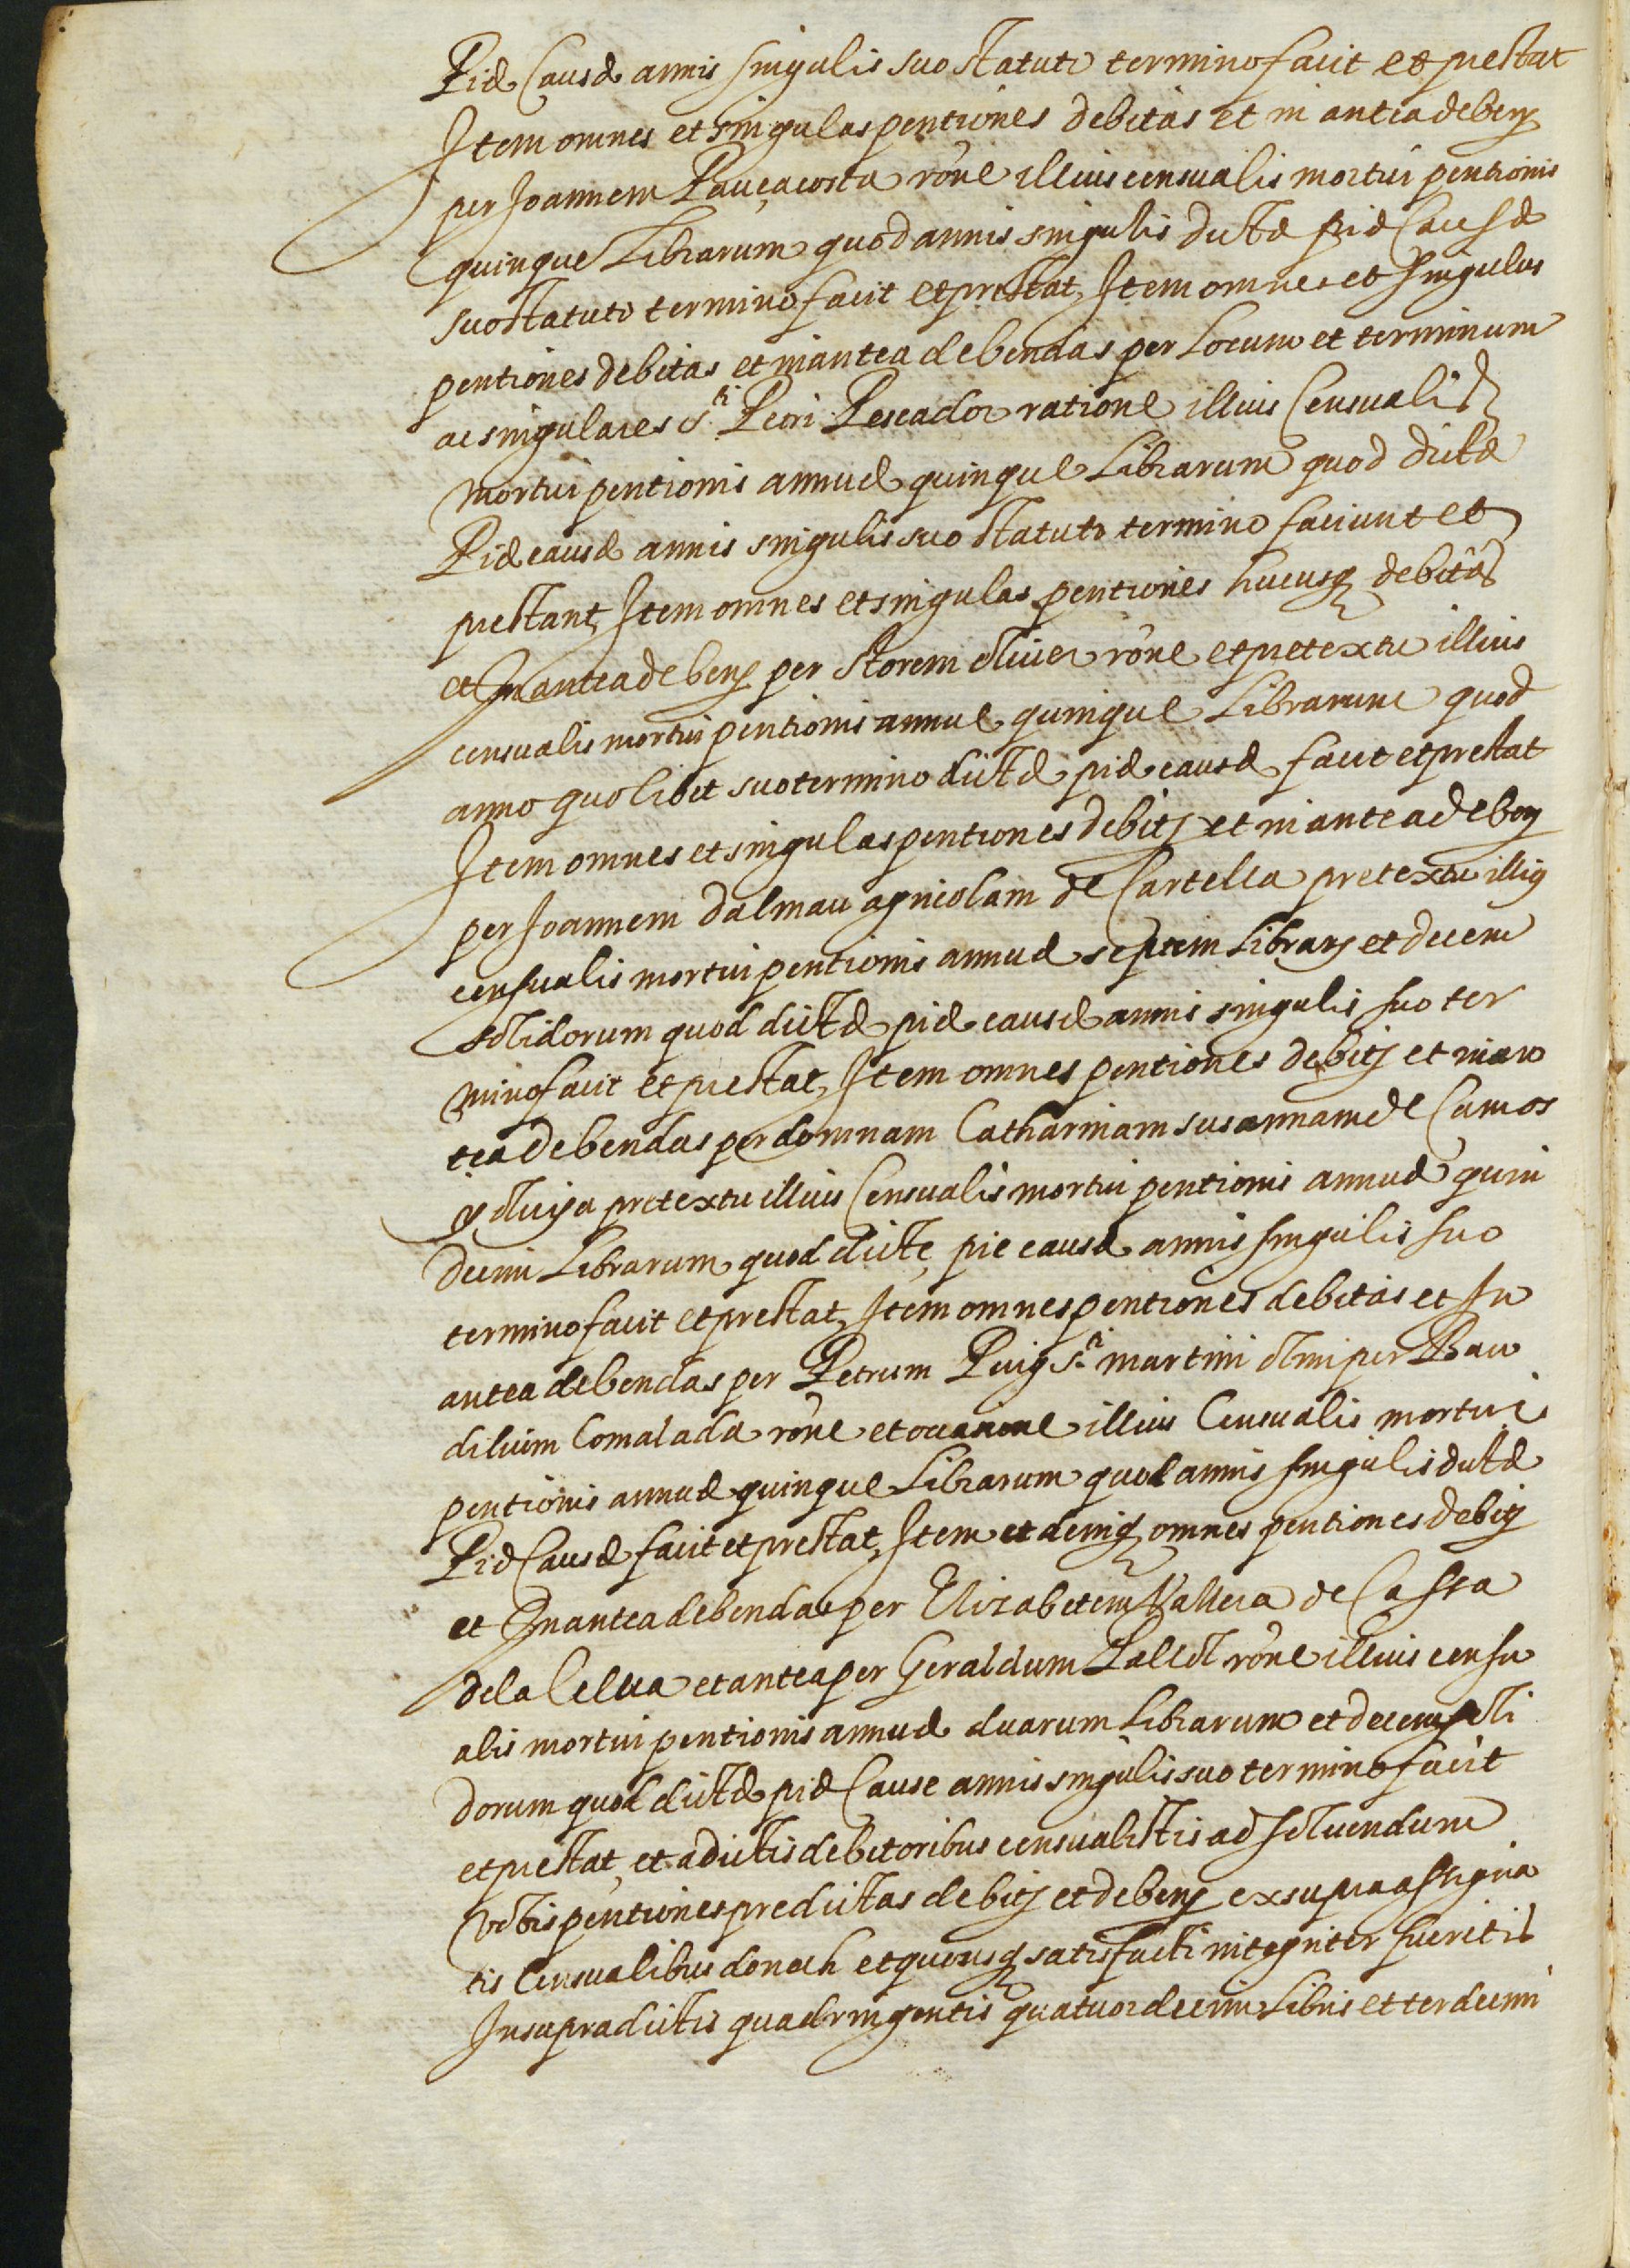 Piæ Causæ annis singulis suo statuto termino facit et prestat
Item omnes et singulas pentiones debitas et in antea deben[das]
per Joannem Pauçacosta rone illius censualis mortui pentionis
quinque Librarum quod annis singulis dictæ piæ Causæ
suo statuto termino facit et prestat, Item omnes et singulas
pentiones debitas et in antea debendas per Locum et terminum
ac singulares sti. Petri Pescador ratione illius Censualis
mortui pentionis annuæ quinque Librarum quod dictæ
Piæ causæ annis singulis suo statuto termino faciunt et
prestant, Item omnes et singulas pentiones hucusq debitas
et In antea deben per storem oliuer rone et pretextu illius
censualis mortui pentionis annue quinque Librarum quod
anno quolibet suo termino dictæ piæ causæ facit et prestat
Item omnes et singulas pentiones debits et in antea deben
per Joannem dalmau agricolam de Cartella pretextu illius
censualis mortui pentionis annuæ septem Librar et decem
solidorum quod dictæ piæ causæ annis singulis suo ter
mino facit et prestat, Item omnes pentiones debits et in an
tea debendas per domnam Catharinam susannam de Camos
y oluija pretextu illius Censualis mortui pentionis annuæ quin
decim Librarum quod dicte pie causæ annis singulis suo
termino facit et prestat, Item omnes pentiones debitas et In
antea debendas per Petrum Puig sti. martini olim per Bau
dilium Comalada rone et occasione illius Censualis mortui
pentionis annuæ quinque Librarum quod annis singulis dictæ
Piæ Causæ facit et prestat, Item et deniq omnes pentiones debits
et In antea debendas per Elizabetem Vallera de Cassa
de la Celua et antea per Geraldum Pallol rone illius censu
alis mortui pentionis annuæ duarum Librarum et decem soli
dorum quod dictæ piæ Cause annis singulis suo termino facit
et prestat, et a dictis debitoribus censualistis ad soluendum
vobis pentiones predictas debits et deben ex supra assigna
tis Censualibus donech et quousq satisfacti integriter fueritis
In supradictis quadringentis quatuordecim Libris et terdecim